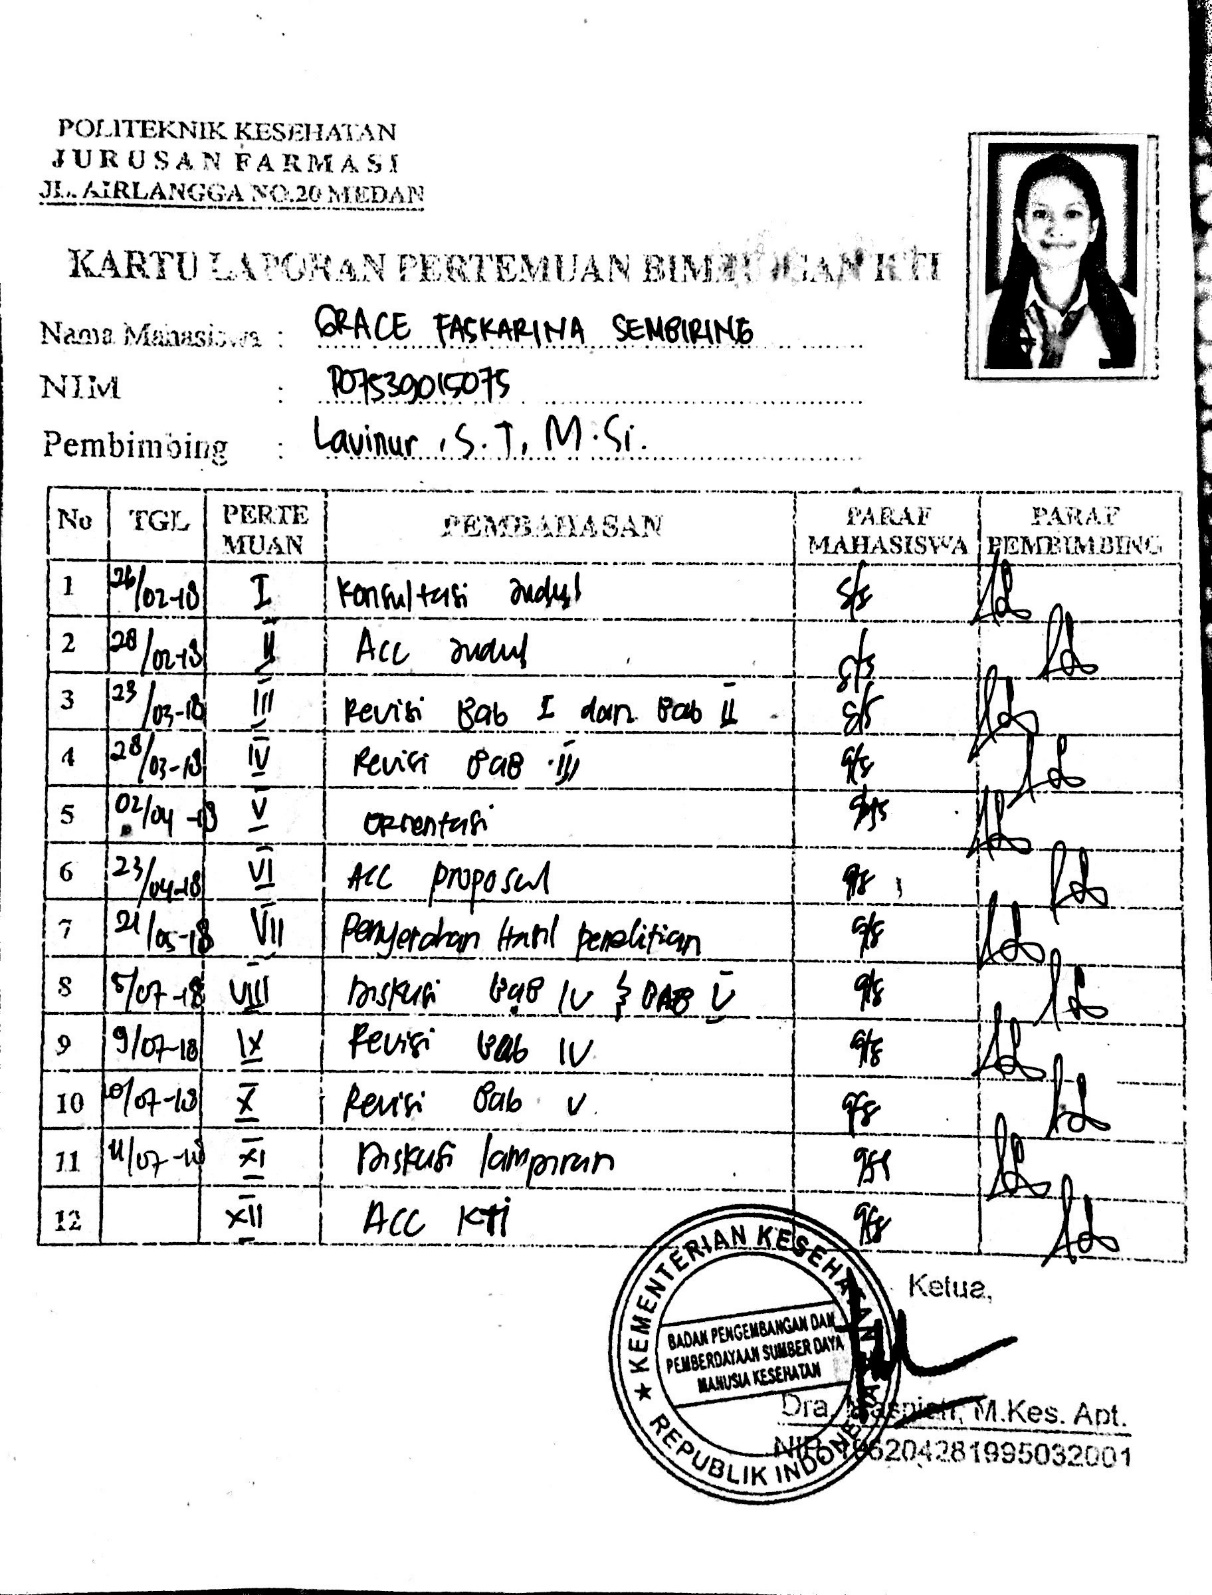 POLITEKNIK KESEHATAN
JURUSAN FARMASI
JL. AIRLANGGA NO.20 MEDAN
KARTU LAPORAN PERTEMUAN BIMBINGAN KTI
Nama Mahasiswa : GRACE FASKARINA SEMBIRING
NIM : P07539015075
Pembimbing : Lavinur, S.T, M.Si.
No TGL PERTEMUAN PEMBAHASAN PARAF MAHASISWA PARAF PEMBIMBING
1 26/02-18 I Konsultasi Judul
2 28/02-18 II Acc Judul
3 23/03-18 III Revisi Bab I dan Bab II
4 28/03-18 IV Revisi BAB III
5 02/04-18 V Orientasi
6 23/04-18 VI Acc proposal
7 21/05-18 VII Penyerahan Hasil penelitian
8 5/07-18 VIII Diskusi BAB IV & BAB V
9 9/07-18 IX Revisi Bab IV
10 10/07-18 X Revisi Bab V
11 11/07-18 XI Diskusi lampiran
12 XII ACC KTI
Ketua,
KEMENTERIAN KESEHATAN
BADAN PENGEMBANGAN DAN
PEMBERDAYAAN SUMBER DAYA
MANUSIA KESEHATAN
REPUBLIK INDONESIA
Dra. Masniah, M.Kes. Apt.
NIP. 196204281995032001